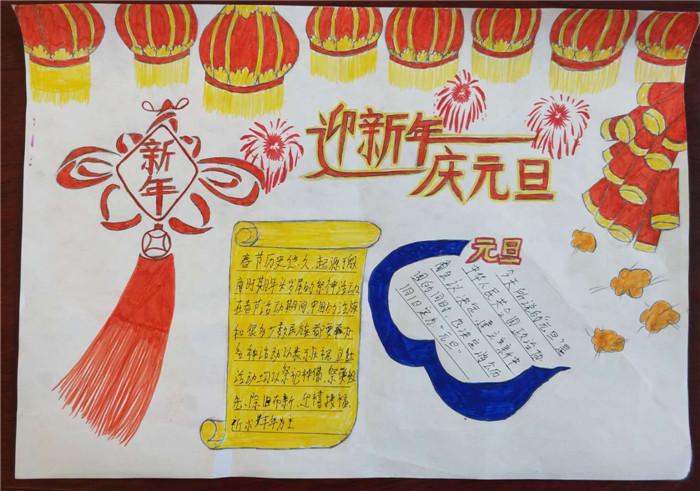 新年
迎新年
庆元旦
春节历史悠久,起源于殷
商时期年头岁尾的祭神活动
在春节活动期间,中国的汉族
和很多少数民族都要举办
各种活动以表示庆祝
活动均以祭祀神佛、祭奠祖
先、除旧布新、迎禧接福、
祈求丰年为主
元旦
今天所说的“元旦”是
中华人民共和国政治协
商会议决定 建立
的同时,也决定
1月1日定为“元旦”